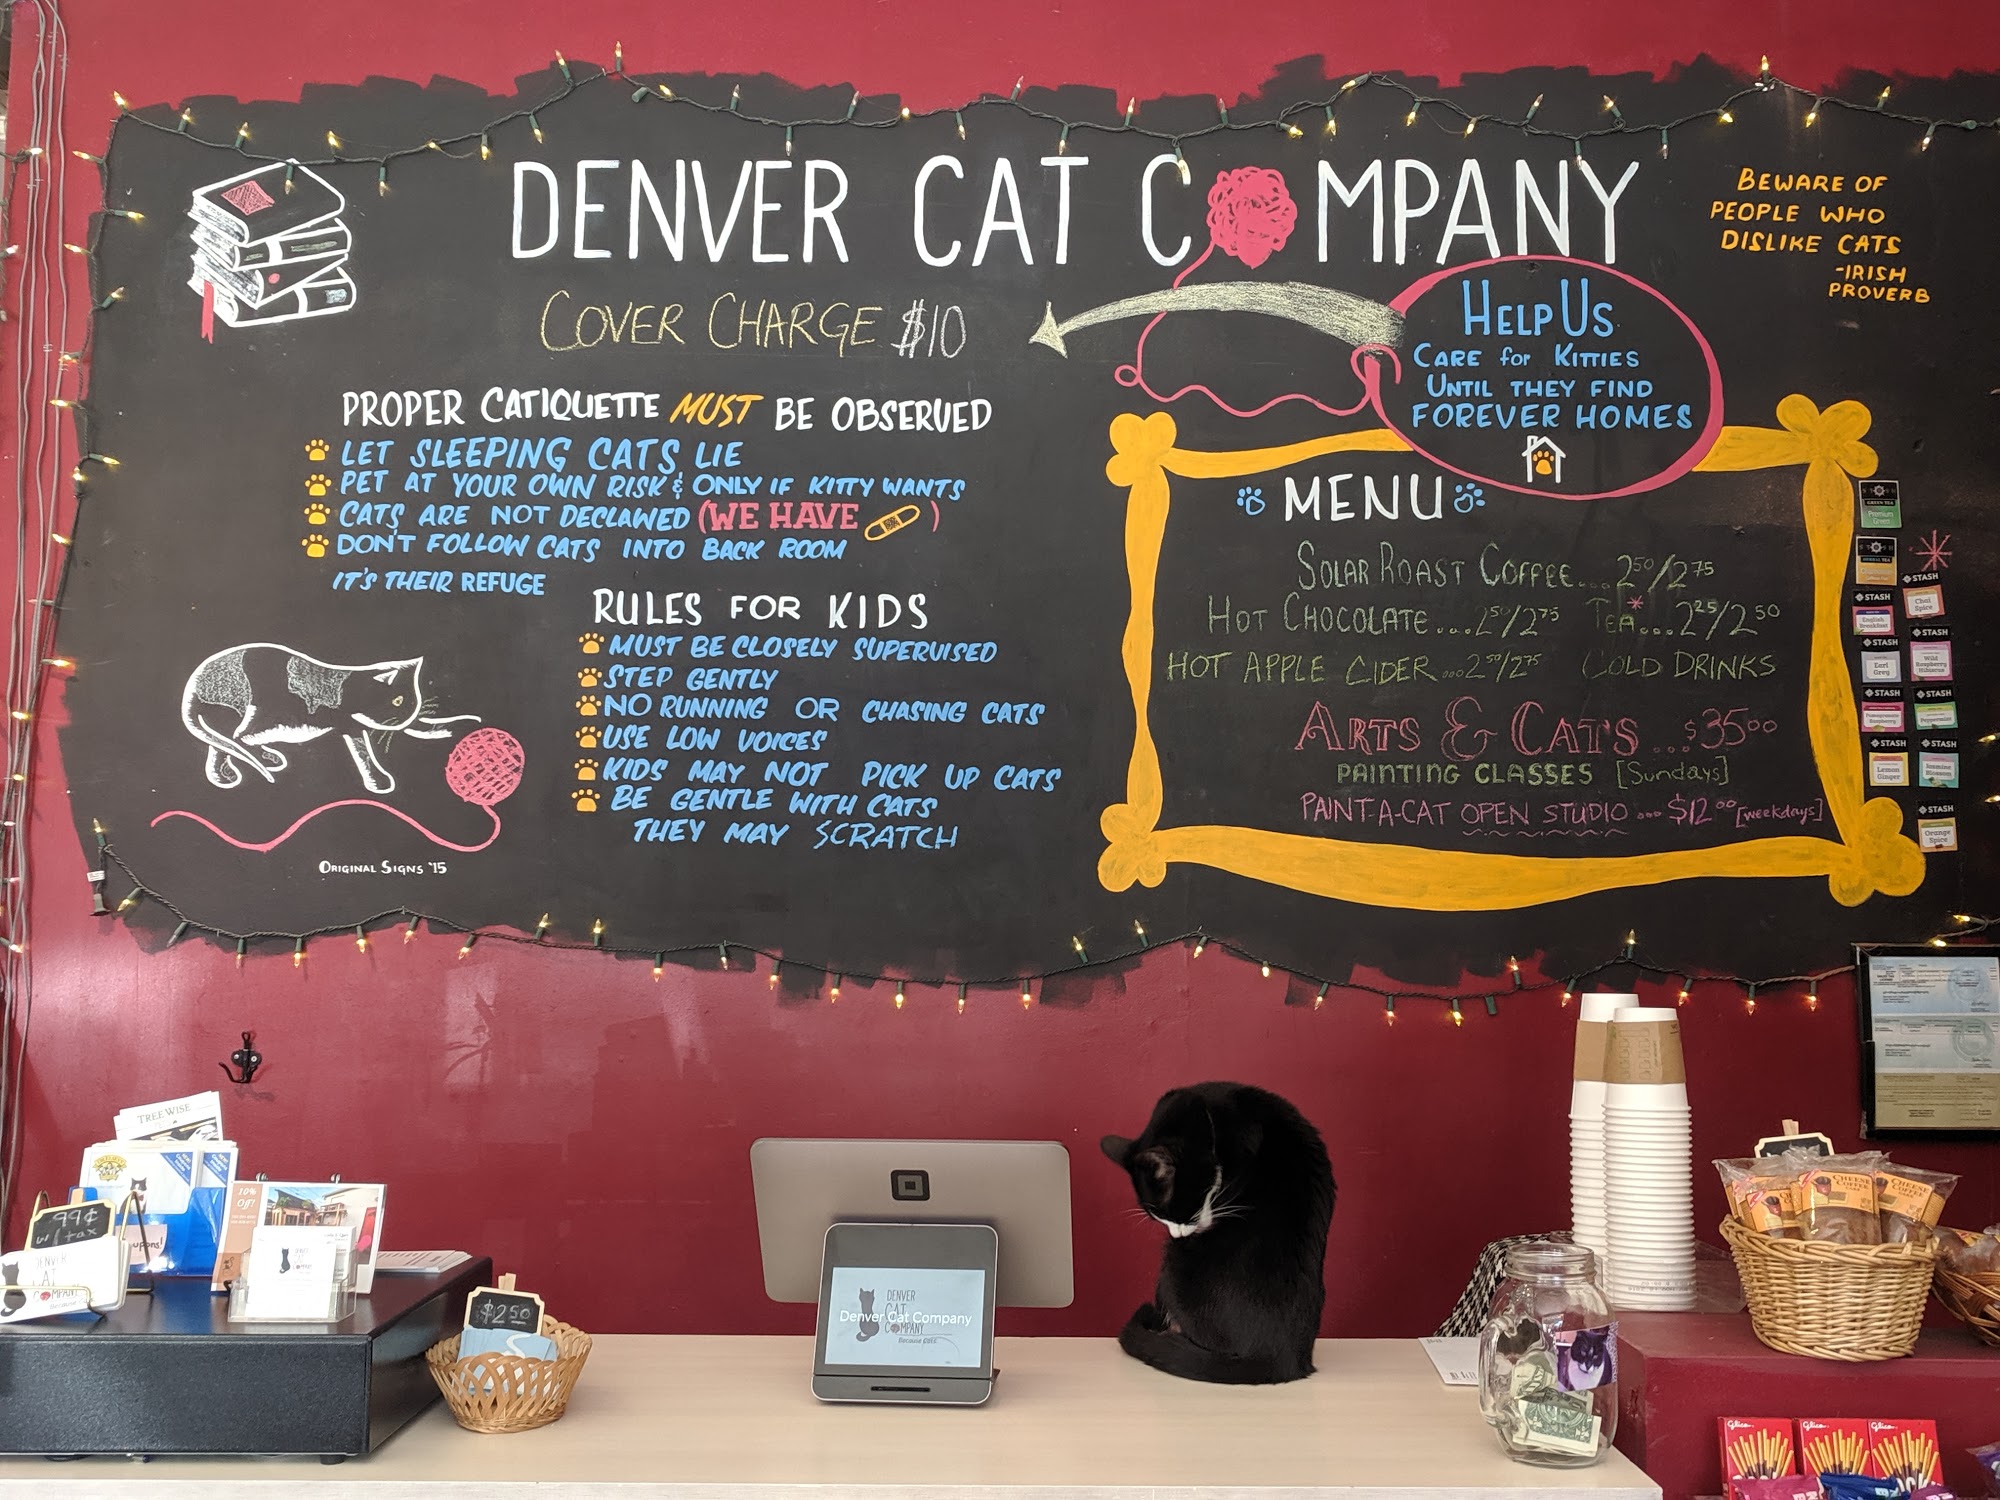 DENVER CAT COMPANY
COVER CHARGE $10
BEWARE OF
PEOPLE WHO
DISLIKE CATS
-IRISH
PROVERB
HELP US
CARE for KITTIES
UNTIL THEY FIND
FOREVER HOMES
PROPER CATIQUETTE MUST BE OBSERVED
LET SLEEPING CATS LIE
PET AT YOUR OWN RISK & ONLY IF KITTY WANTS
CATS ARE NOT DECLAWED (WE HAVE )
DON'T FOLLOW CATS INTO BACK ROOM
IT'S THEIR REFUGE
RULES FOR KIDS
MUST BE CLOSELY SUPERVISED
STEP GENTLY
NO RUNNING OR CHASING CATS
USE LOW VOICES
KIDS MAY NOT PICK UP CATS
BE GENTLE WITH CATS
THEY MAY SCRATCH
ORIGINAL SIGNS '15
MENU
SOLAR ROAST COFFEE... 250/275
HOT CHOCOLATE...250/275 TEA*...225/250
HOT APPLE CIDER...250/275 COLD DRINKS
ARTS & CATS...$3500
PAINTING CLASSES [Sundays]
PAINT-A-CAT OPEN STUDIO...$1200 [weekdays]
STASH
GREEN TEA
Premium
Green
STASH
STASH
Chai
Spice
STASH
English
Breakfast
STASH
Wild
Raspberry
Hibiscus
STASH
Earl
Grey
STASH
Pomegranate
Raspberry
STASH
Peppermint
STASH
Lemon
Ginger
STASH
Jasmine
Blossom
STASH
Orange
Spice
TREEWISE
99¢
w/tax
DENVER
CAT
COMPANY
Because
10%
Off!
$2.50
DENVER
CAT
COMPANY
Because Cats
Denver Cat Company
CHEESE
COFFEE
CHEESE
COFFEE
Glico
Glico
Glico